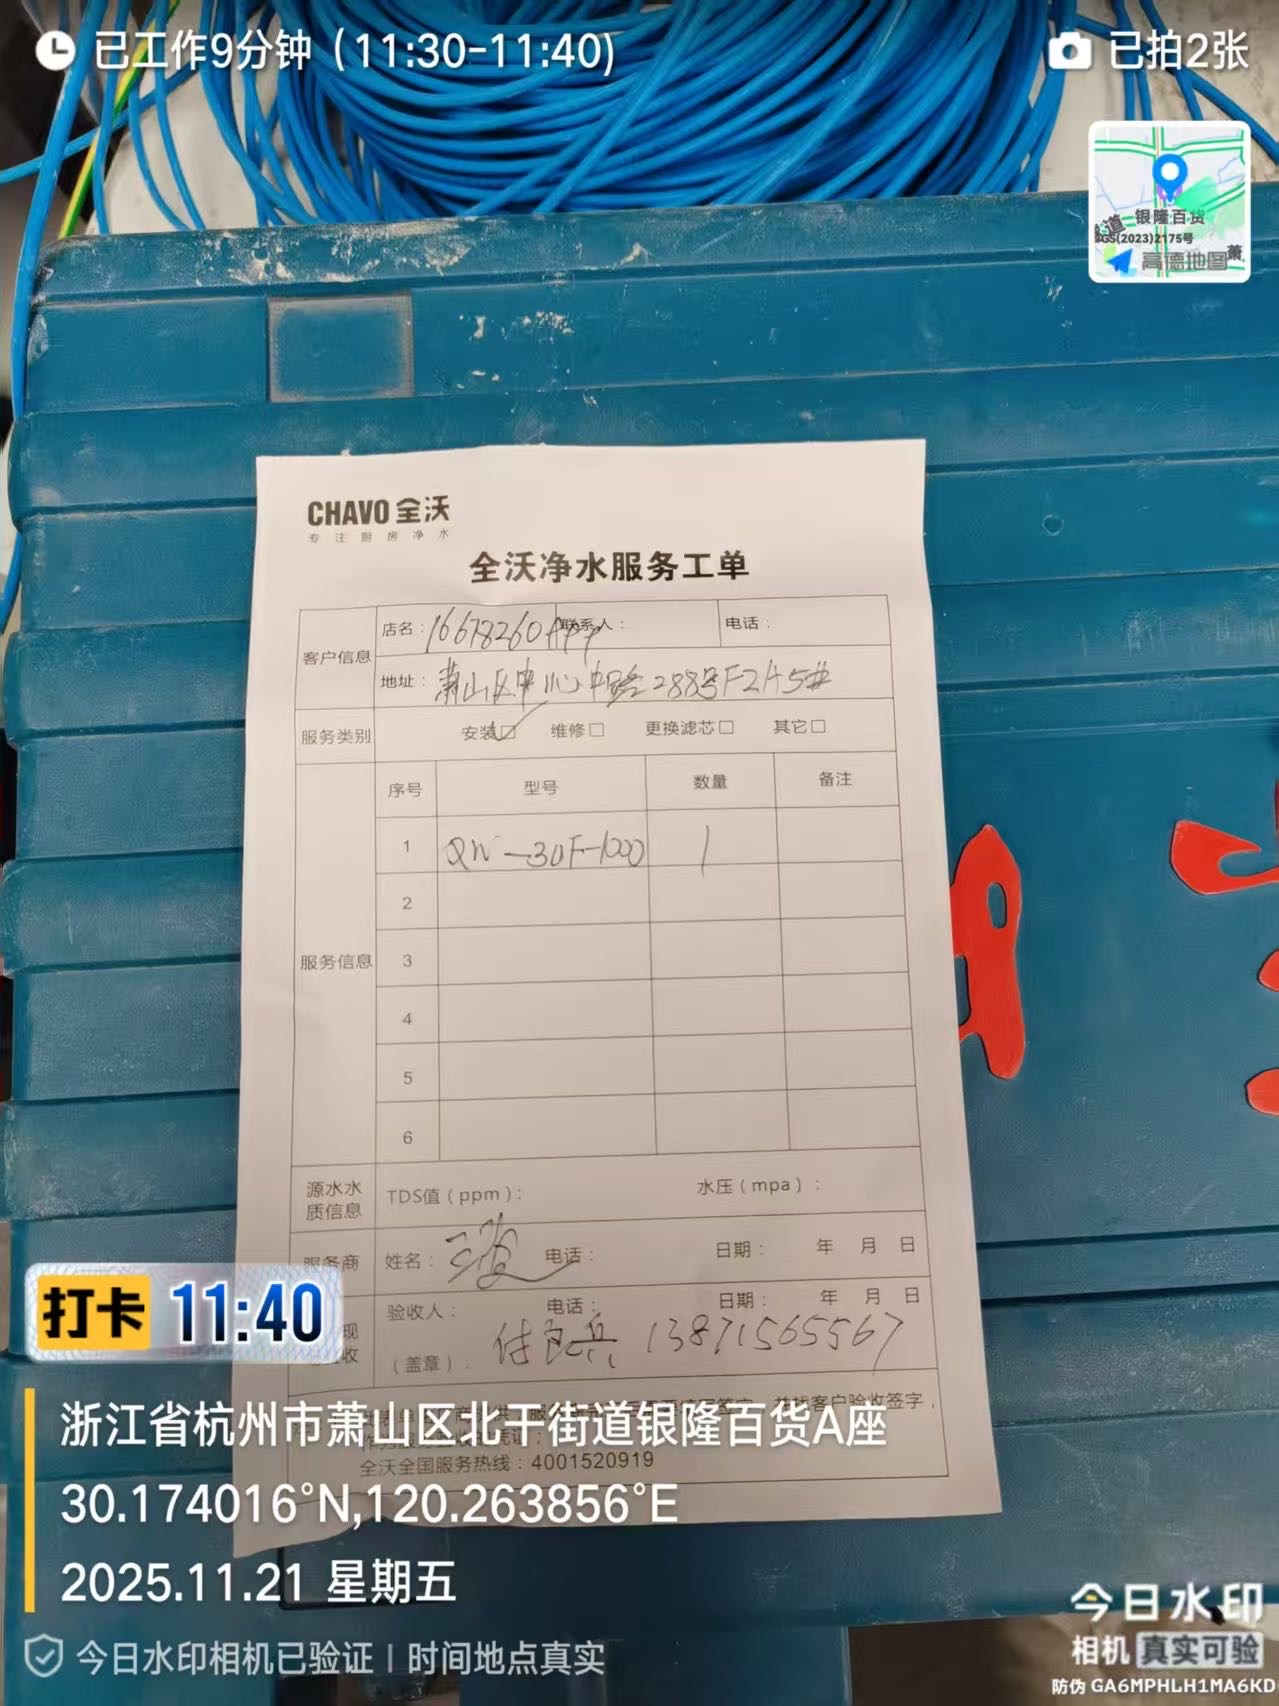 已工作9分钟（11:30-11:40)
已拍2张
银隆百货
GS(2023)2175号
高德地图
萧
CHAVO 全沃
专注厨房净水
全沃净水服务工单
客户信息
店名：16678260APP 联系人： 电话：
地址：萧山区中心中路288号F2A5#
服务类别 安装☑ 维修□ 更换滤芯□ 其它□
服务信息
序号 型号 数量 备注
1 QW-30F-1000 1
2
3
4
5
6
源水水质信息 TDS值（ppm）： 水压（mpa）：
服务商 姓名： 电话： 日期： 年 月 日
验收人： 电话： 日期： 年 月 日
（盖章）： 13871565567
打卡 11:40
浙江省杭州市萧山区北干街道银隆百货A座
全沃全国服务热线：4001520919
30.174016°N,120.263856°E
2025.11.21 星期五
今日水印相机已验证 | 时间地点真实
今日水印
相机 真实可验
防伪 GA6MPHLH1MA6KD